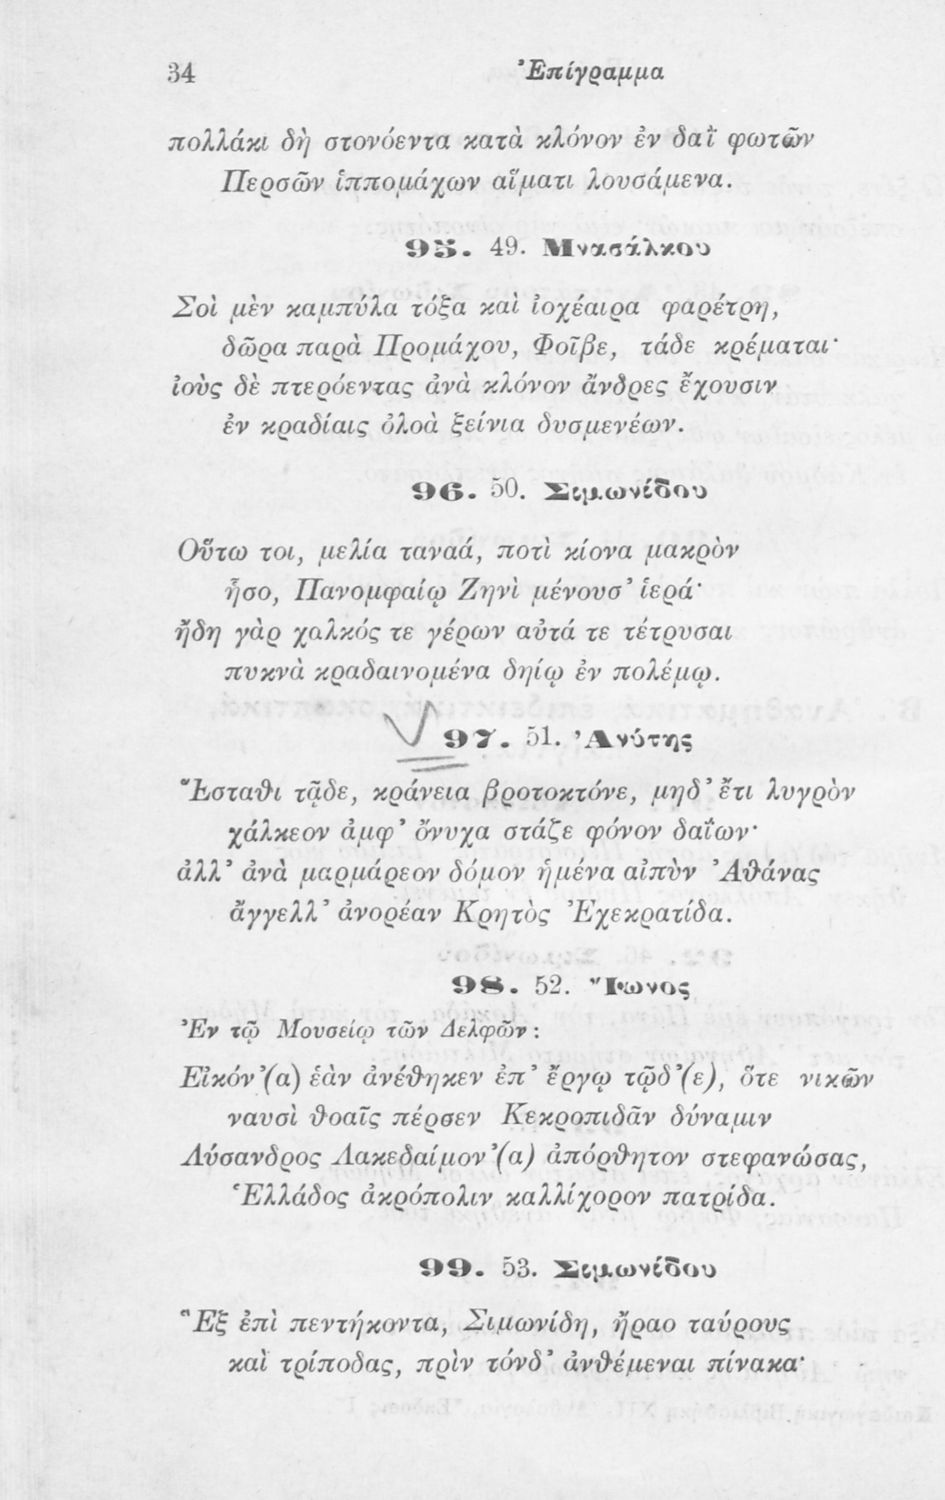 34 Ἐπίγραμμα
πολλάκι δὴ στονόεντα κατὰ κλόνον ἐν δαῒ φωτῶν
Περσῶν ἱππομάχων αἵματι λουσάμενα.
95. 49. Μνασάλκου
Σοὶ μὲν καμπύλα τόξα καὶ ἰοχέαιρα φαρέτρη,
δῶρα παρὰ Προμάχου, Φοῖβε, τάδε κρέμαται·
ἰοὺς δὲ πτερόεντας ἀνὰ κλόνον ἄνδρες ἔχουσιν
ἐν κραδίαις ὀλοὰ ξείνια δυσμενέων.
96. 50. Σιμωνίδου
Οὕτω τοι, μελία ταναά, ποτὶ κίονα μακρὸν
ἧσο, Πανομφαίῳ Ζηνὶ μένουσ' ἱερά·
ἤδη γὰρ χαλκός τε γέρων αὐτά τε τέτρυσαι
πυκνὰ κραδαινομένα δηίῳ ἐν πολέμῳ.
97. 51. Ἀνύτης
Ἕσταθι τᾷδε, κράνεια βροτοκτόνε, μηδ' ἔτι λυγρὸν
χάλκεον ἀμφ' ὄνυχα στάζε φόνον δαΐων·
ἀλλ' ἀνὰ μαρμάρεον δόμον ἡμένα αἰπὺν Ἀθάνας
ἄγγελλ' ἀνορέαν Κρητὸς Ἐχεκρατίδα.
98. 52. Ἴωνος
Ἐν τῷ Μουσείῳ τῶν Δελφῶν :
Εἰκόν'(α) ἑὰν ἀνέθηκεν ἐπ' ἔργῳ τῷδ'(ε), ὅτε νικῶν
ναυσὶ θοαῖς πέρσεν Κεκροπιδᾶν δύναμιν
Λύσανδρος Λακεδαίμον'(α) ἀπόρθητον στεφανώσας,
Ἑλλάδος ἀκρόπολιν καλλίχορον πατρίδα.
99. 53. Σιμωνίδου
Ἓξ ἐπὶ πεντήκοντα, Σιμωνίδη, ἤραο ταύρους
καὶ τρίποδας, πρὶν τόνδ' ἀνθέμεναι πίνακα·